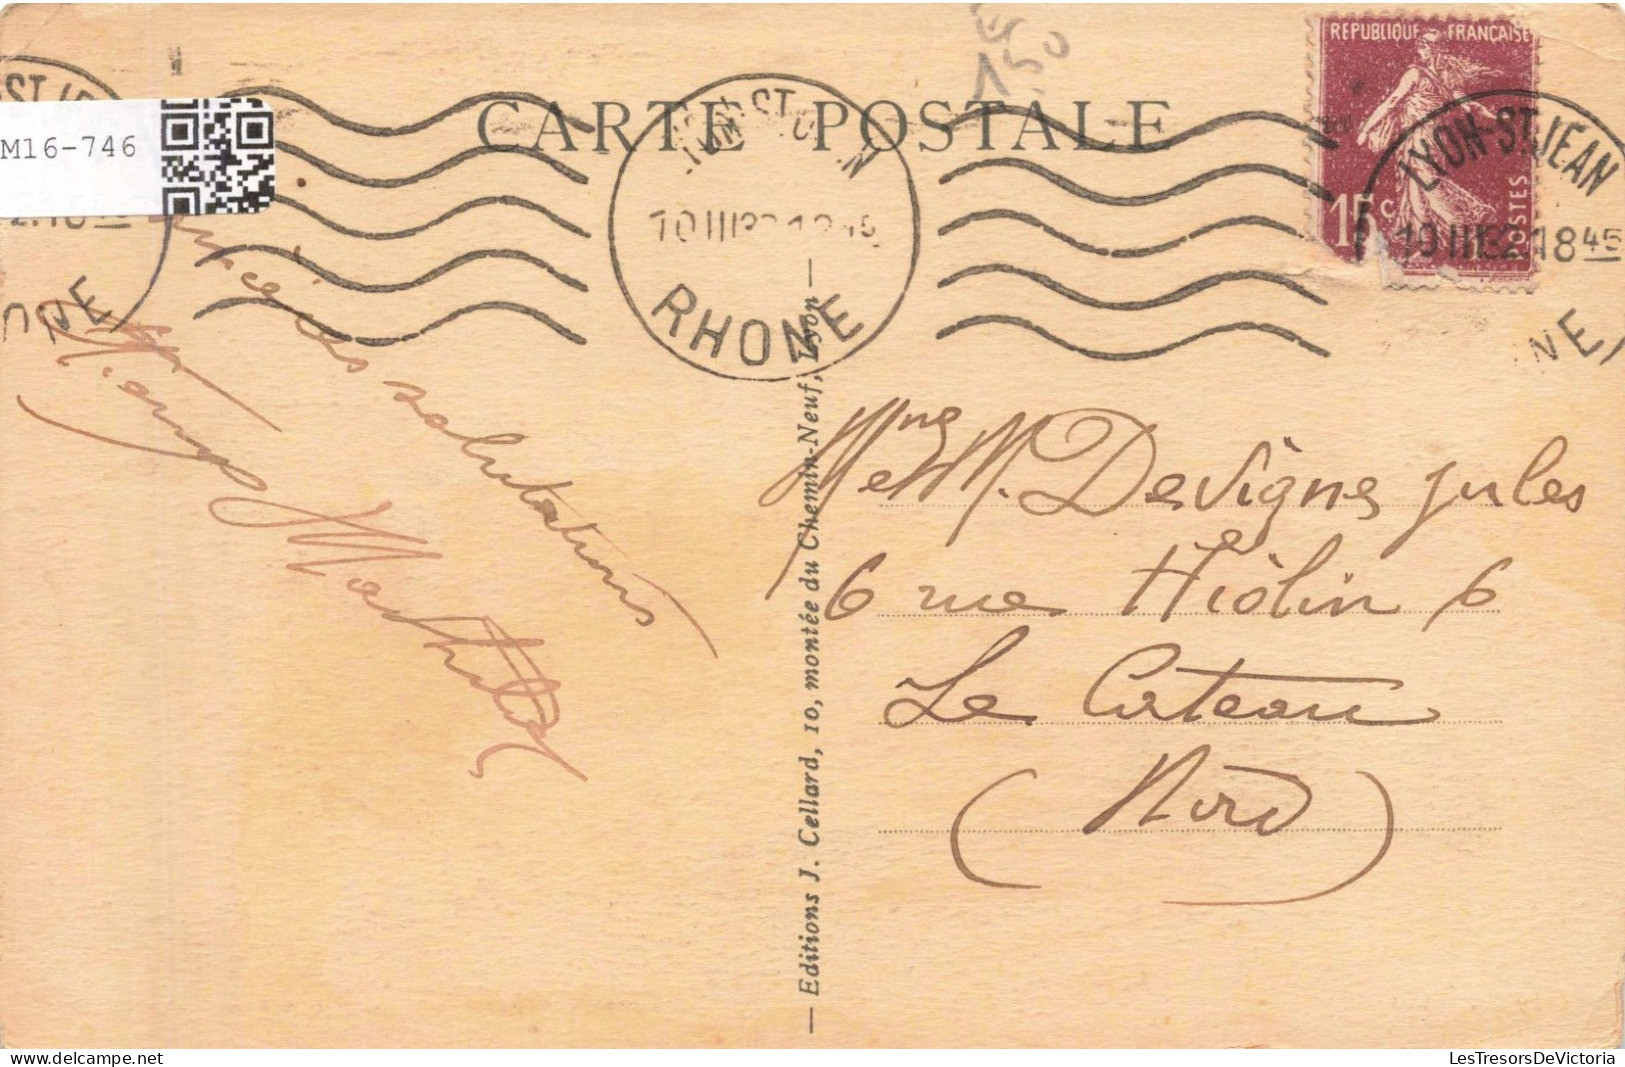 CARTE POSTALE
M16-746
REPUBLIQUE FRANÇAISE
15 c
POSTES
LYON-ST JEAN
10 III 32 18 45
RHONE
LYON-ST JEAN
10 III 32 18 45
NE
ST JE
NE
salutations
Mathilde
Me M. Devigne Jules
6 rue Hiolin 6
Le Cateau
(Nord)
— Editions J. Cellard, 10, montée du Chemin-Neuf, Lyon —
150
LesTresorsDeVictoria